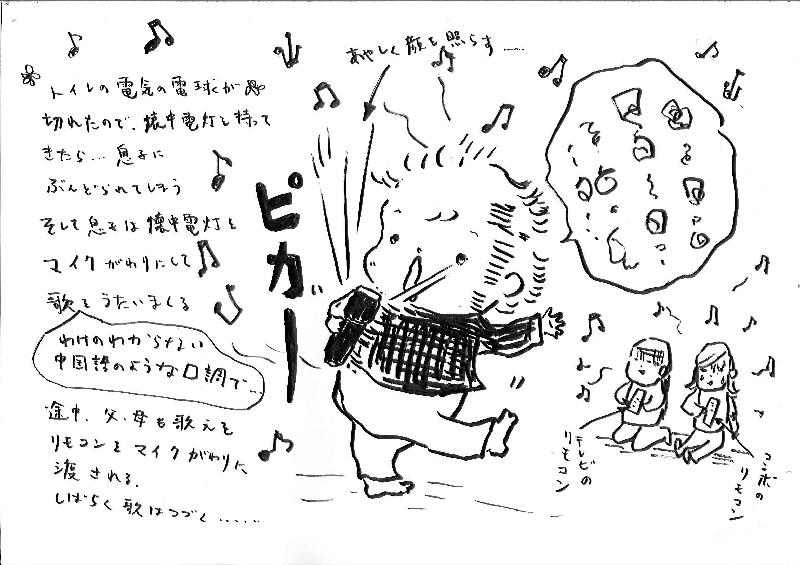 トイレの電気の電球が
切れたので、懐中電灯を持って
きたら…息子に
ぶんどられてしまう
そして息子は懐中電灯を
マイクがわりにして
歌をうたいまくる
わけのわからない
中国語のような口調で…
途中、父・母も歌えと
リモコンをマイクがわりに
渡される。
しばらく歌はつづく……
ピカー
あやしく顔を照らす……
テレビの
リモコン
コンポの
リモコン